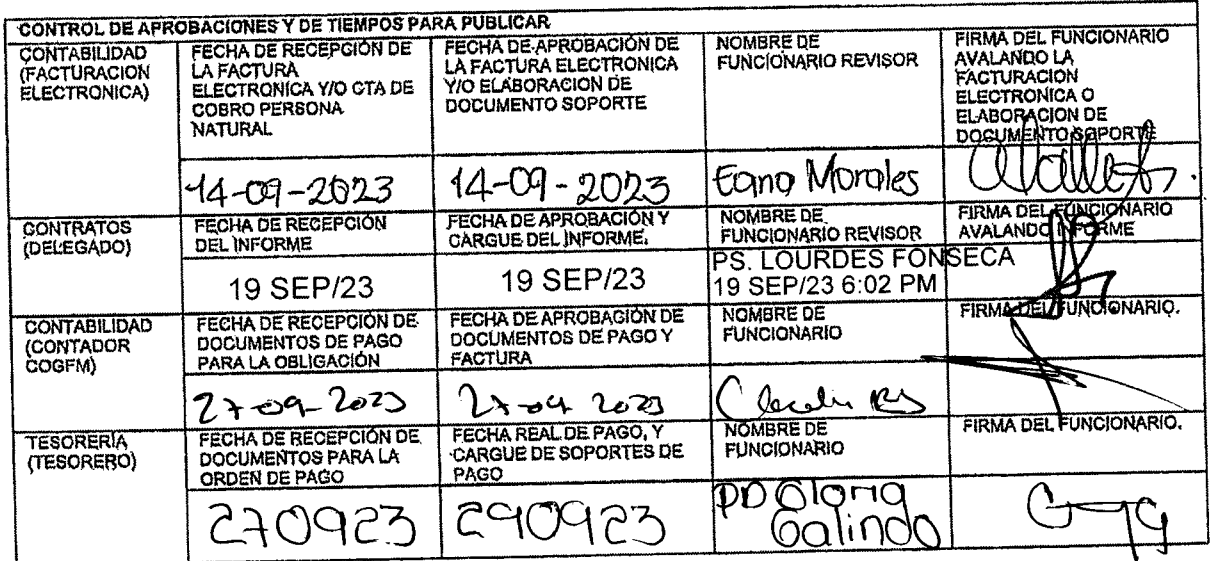 CONTROL DE APROBACIONES Y DE TIEMPOS PARA PUBLICAR
CONTABILIDAD
(FACTURACION
ELECTRONICA)
FECHA DE RECEPCIÓN DE
LA FACTURA
ELECTRONICA Y/O CTA DE
COBRO PERSONA
NATURAL
FECHA DE APROBACIÓN DE
LA FACTURA ELECTRONICA
Y/O ELABORACION DE
DOCUMENTO SOPORTE
NOMBRE DE
FUNCIONARIO REVISOR
FIRMA DEL FUNCIONARIO
AVALANDO LA
FACTURACION
ELECTRONICA O
ELABORACION DE
DOCUMENTO SOPORTE
14-09-2023
14-09-2023
Morales
CONTRATOS
(DELEGADO)
FECHA DE RECEPCIÓN
DEL INFORME
FECHA DE APROBACIÓN Y
CARGUE DEL INFORME.
NOMBRE DE
FUNCIONARIO REVISOR
FIRMA DEL FUNCIONARIO
AVALANDO INFORME
19 SEP/23
19 SEP/23
PS. LOURDES FONSECA
19 SEP/23 6:02 PM
CONTABILIDAD
(CONTADOR
COGFM)
FECHA DE RECEPCIÓN DE
DOCUMENTOS DE PAGO
PARA LA OBLIGACIÓN
FECHA DE APROBACIÓN DE
DOCUMENTOS DE PAGO Y
FACTURA
NOMBRE DE
FUNCIONARIO
FIRMA DEL FUNCIONARIO.
27-09-2023
27-09 2023
TESORERÍA
(TESORERO)
FECHA DE RECEPCIÓN DE
DOCUMENTOS PARA LA
ORDEN DE PAGO
FECHA REAL DE PAGO, Y
CARGUE DE SOPORTES DE
PAGO
NOMBRE DE
FUNCIONARIO
FIRMA DEL FUNCIONARIO.
270923
290923
PD Gloria
Galindo